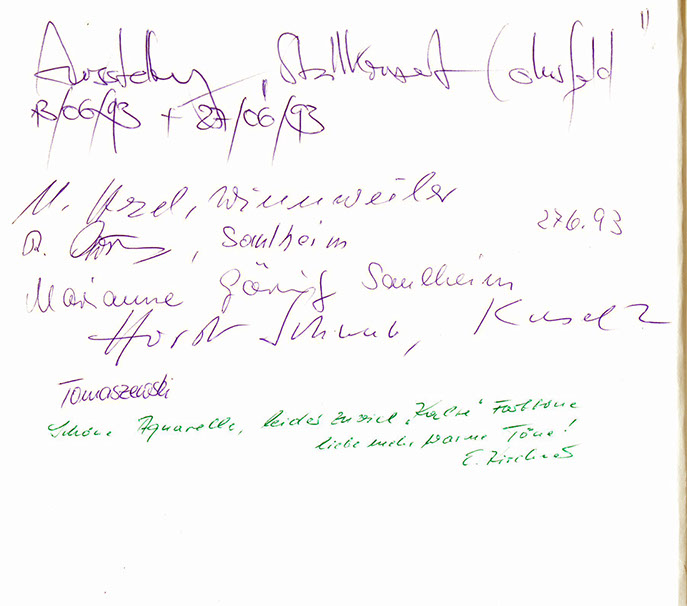 Ausstellung "Stallkonzert
13/06/93 + 27/06/93
M. Hezel, Winnweiler
27.6.93
R. , Saulheim
Marianne Saulheim
Horst Schwab, Kusel
Tomaszewski
Schöne Aquarelle, leider zuviel "Kalte" Farbtöne
liebe mehr warme Töne!
E.